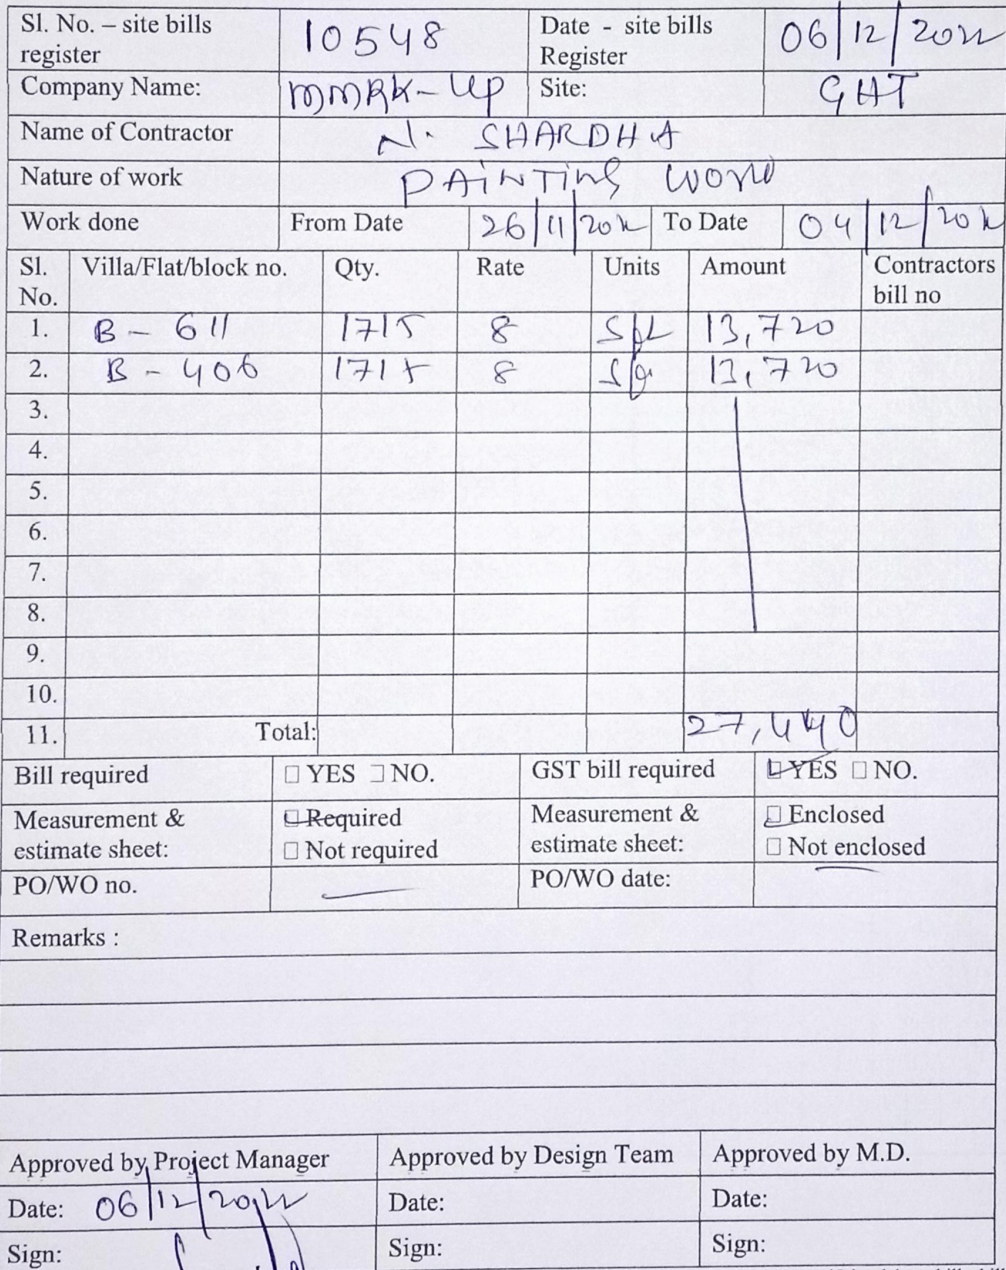 Sl. No. – site bills register 10548 Date - site bills Register 06/12/2022
Company Name: MMRK-UP Site: GHT
Name of Contractor N. SHARDHA
Nature of work PAINTING WORK
Work done From Date 26/11/2022 To Date 04/12/2022
Sl. No. Villa/Flat/block no. Qty. Rate Units Amount Contractors bill no
1. B - 611 1715 8 Sft 13,720
2. B - 406 1715 8 Sft 13,720
3.
4.
5.
6.
7.
8.
9.
10.
11. Total: 27,440
Bill required □ YES □ NO. GST bill required □ YES □ NO.
Measurement & estimate sheet: □ Required □ Not required Measurement & estimate sheet: □ Enclosed □ Not enclosed
PO/WO no. PO/WO date:
Remarks :
Approved by Project Manager Approved by Design Team Approved by M.D.
Date: 06/12/2022 Date: Date:
Sign: Sign: Sign: